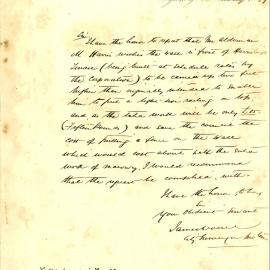 Sir
I have the honor to report that Mr Alderman
M Harris wishes the wall in front of
Terrace (being built at schedule rates by
the Corporation) to be carried up two feet
higher than originally intended to enable
him to put a railing on top,
and as the extra work will be only £50
(Fifty Pounds) and save the council the
cost of building a fence on the wall
which would cost about half the extra
work of masonry, I would recommend
that the request be complied with.
I have the honor to be
Sir
Your obedient servant
City Surveyor